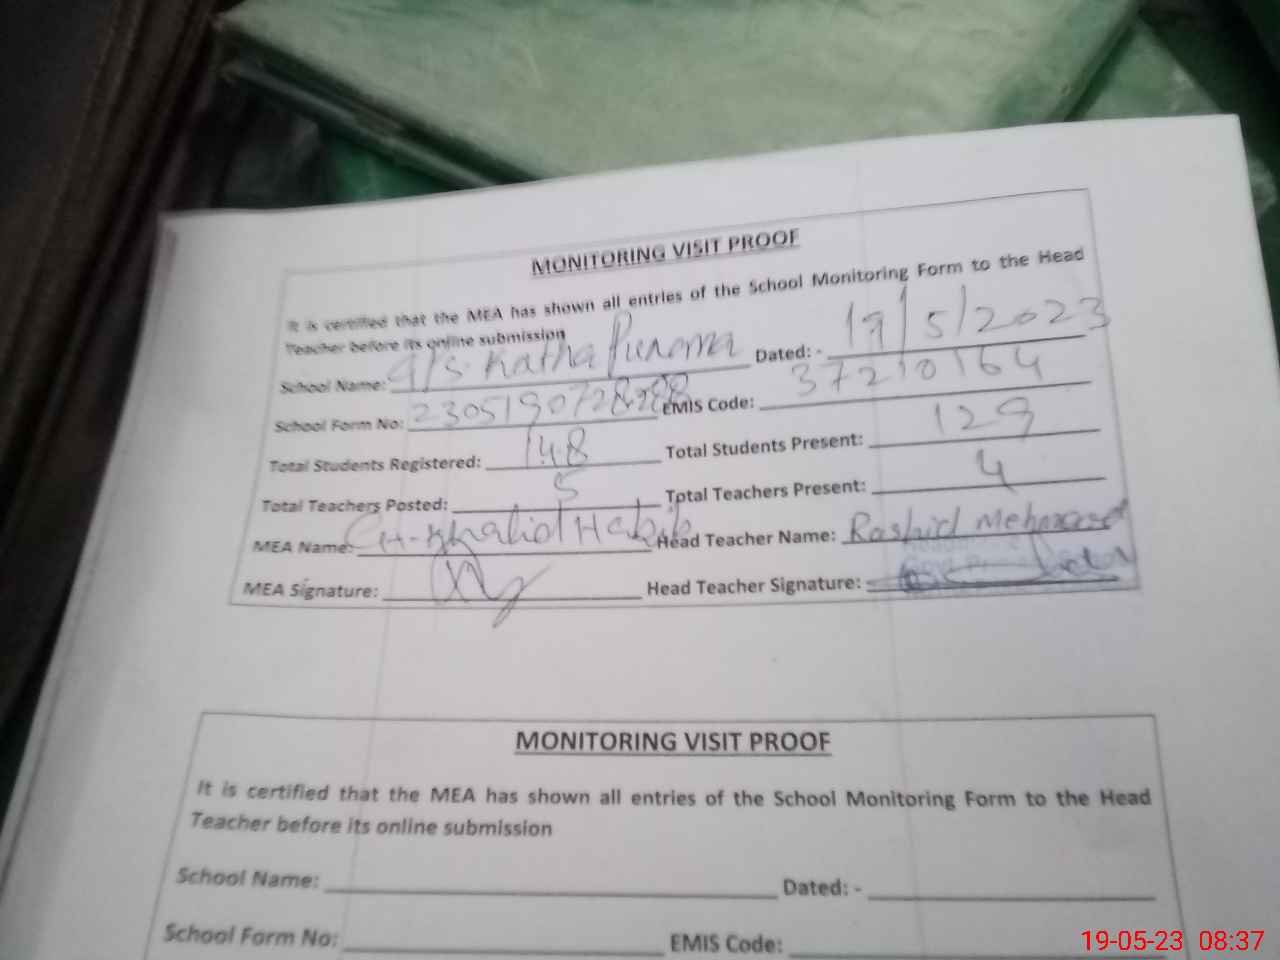 MONITORING VISIT PROOF
It is certified that the MEA has shown all entries of the School Monitoring Form to the Head
Teacher before its online submission
School Name: G/S. Katha Purana Dated: - 19/5/2023
School Form No: 23051907 EMIS Code: 37210164
Total Students Registered: 148 Total Students Present: 129
Total Teachers Posted: 5 Total Teachers Present: 4
MEA Name: CH-Khalid Habib Head Teacher Name: Rashid Mehmood
MEA Signature: Head Teacher Signature:
MONITORING VISIT PROOF
It is certified that the MEA has shown all entries of the School Monitoring Form to the Head
Teacher before its online submission
School Name: Dated: -
School Form No: EMIS Code:
19-05-23 08:37